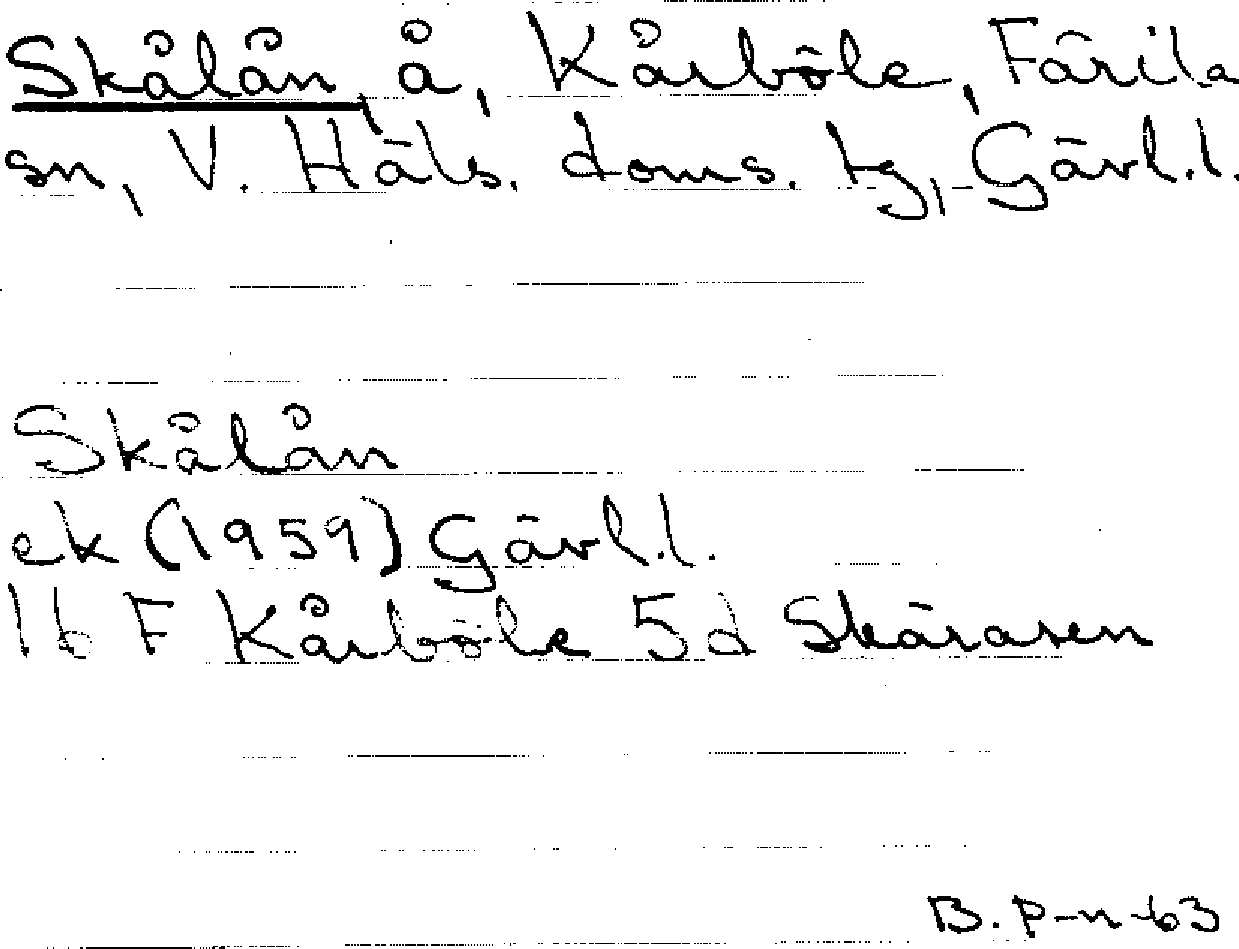 Skålån, å, Kårböle, Färila
sn, V. Häls. doms. tg, Gävl.l.
Skålån
ek (1959) Gävl.l.
16 F Kårböle 5d Skäråsen
B. P-n-63